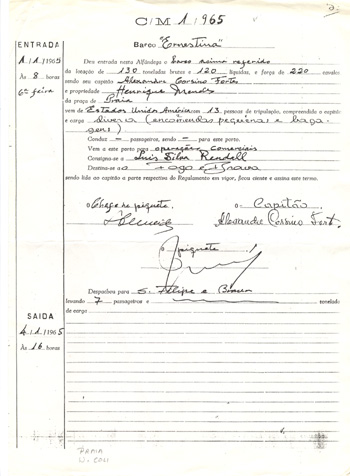 C/M 1/965
ENTRADA
Barco "Ernestina"
1/1/1965
Deu entrada nesta Alfândega o barco acima referido
Às 8 horas
da lotação de 130 toneladas brutas e 120 líquidas, e força de 220 cavalos
6ª feira
sendo seu capitão Alexandre Corsino Fortes
e propriedade Henrique Mendes
da praça de Praia
vem de Estados Unidos América com 13 pessoas de tripulação, compreendido o capitão
e carga diversa (encomendas pequenas e baga
gens)
Conduz — passageiros, sendo — para este porto.
Vem a este porto para operações comerciais
Consigna-se a Luis Silva Rendall
Destina-se a Fogo e Brava
sendo lida ao capitão a parte respectiva do Regulamento em vigor, ficou ciente e assina este termo.
o Chefe de piquete
o Capitão
Alexandre Corsino Fort.
O piquete
Despachou para S. Filipe e Brava
levando 7 passageiros e toneladas
de carga
SAIDA
4/1/1965
Às 16 horas
PRAIA